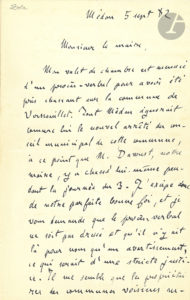 Zola
Médan 5 sept 82
Monsieur le maire,
Mon valet de chambre est menacé
d'un procès-verbal pour avoir été
pris chassant sur la commune de
Vernouillet. Tout Médan ignorait
comme lui le nouvel arrêté du con-
seil municipal de cette commune,
à ce point que M. notre
maire, y a chassé lui-même pen-
dant la journée du 3. J'espère donc
de notre parfaite bonne foi, et je
vous demande que le procès-verbal
ne soit pas dressé et qu'il n'y ait
là pour nous qu'un avertissement,
ce qui serait d'une stricte justi-
ce. Il me semble que les propriétai-
res des communes voisines ne